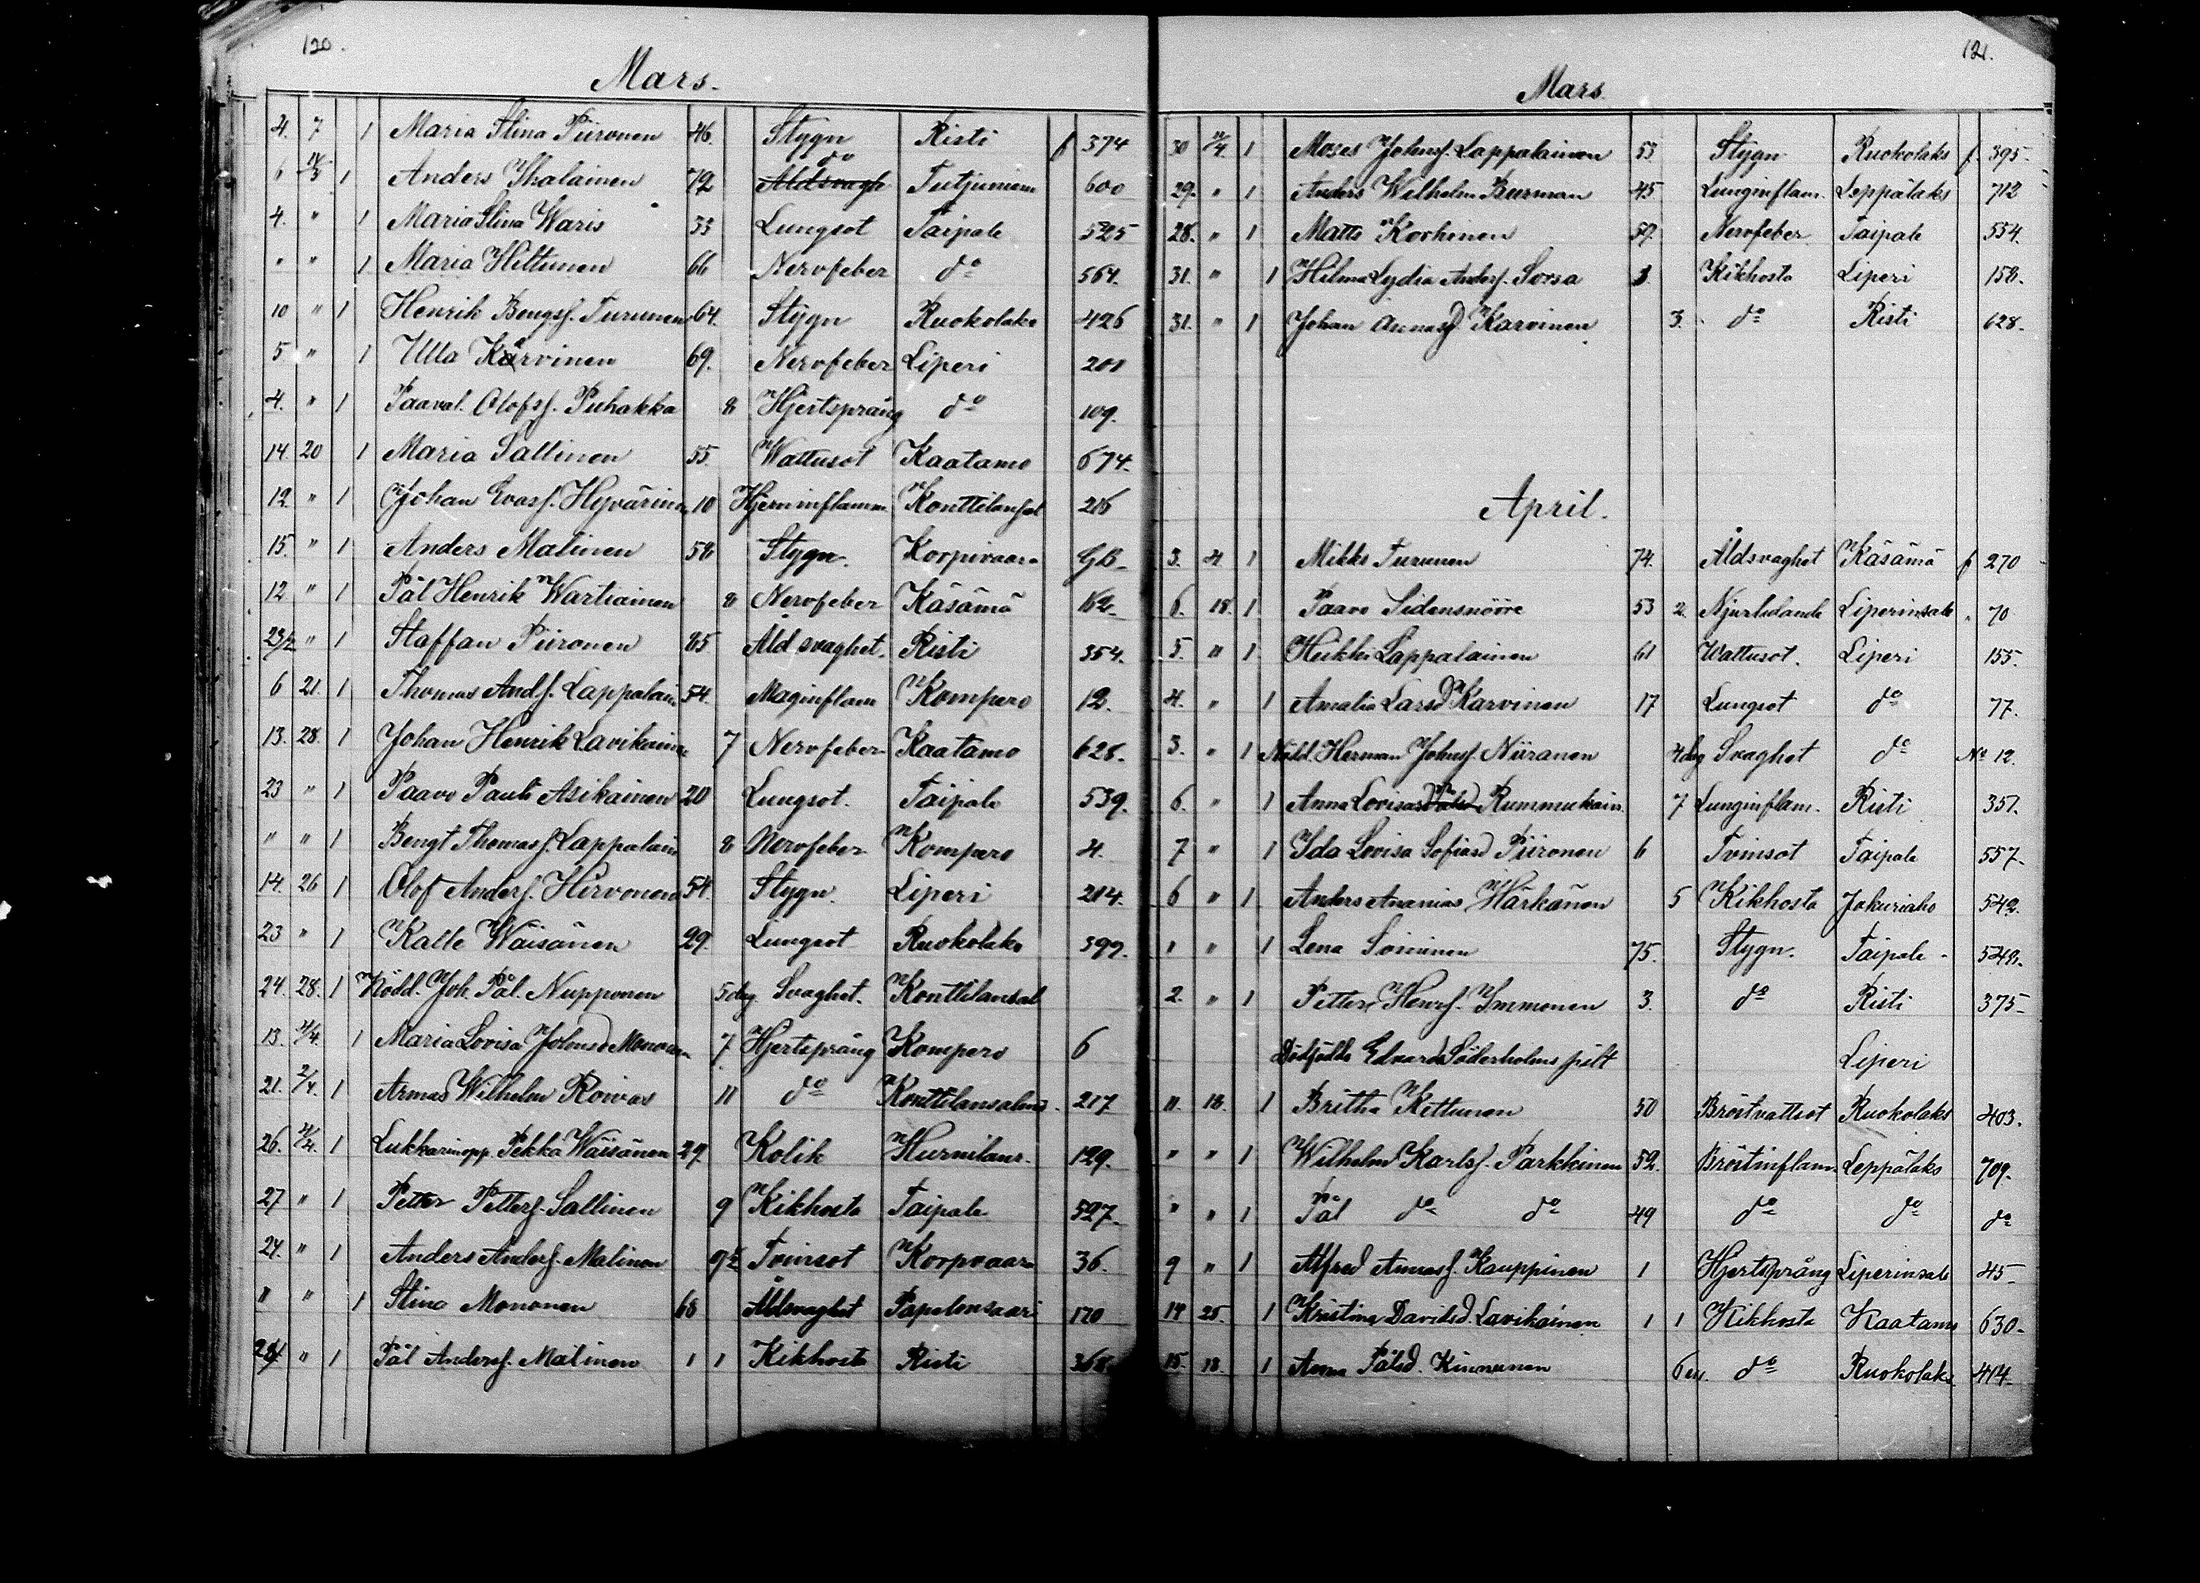 120.
Mars.
4. 7 1 Maria Stina Piironen 46. Stygn Risti f 374
6 14/3 1 Anders Ikalainen 72 do Åldsvagh Tutjuniemi 600
4. " 1 Maria Stina Waris 33 Lungsot Taipale 525
" " 1 Maria Hiltunen 66 Nervfeber do 564.
10 " 1 Henrik Bengtsf. Turunen 64. Stygn Ruokolaks 426
5 " 1 Ulla Karvinen 69. Nervfeber Liperi 201
4. " 1 Paaval Olofsf. Puhakka 8 Hjertsprång do 109.
14. 20 1 Maria Sallinen 55. Wattusot Kaatamo 674.
12. " 1 Johan Evasf. Hyvärinen 10 Hjerninflamm Konttilansal 216
15. " 1 Anders Malinen 58 Stygn. Korpivaara GB.
12 " 1 Pål Henrik Wartiainen 8 Nervfeber Käsämä 162.
23/2 " 1 Staffan Piironen 85 Åld svaghet. Risti 354.
6 21. 1 Thomas Andf. Lappalain 54. Maginflam Kompero 12.
13. 28. 1 Johan Henrik Lavikainen 7 Nervfeber Kaatamo 628.
23 " 1 Paavo Pauli Asikainen 20 Lungsot. Taipale 539.
" " 1 Bengt Thomasf. Lappalain 8 Nervfeber Kompero 4.
14. 26 1 Olof Andersf. Hirvonen 54. Stygn. Liperi 214.
23 " 1 Kalle Wäisänen 29. Lungsot Ruokolaks 399.
24. 28. 1 Nödd. Joh. Pål. Nupponen 5 dag Svaghet. Konttilansal
13. 4/4. 1 Maria Lovisa Johansd Mononen 7. Hjertsprång Kompero 6
21. 2/4. 1 Armas Wilhelm Roivas 11 do Konttilansalm 217
26. 4/4. 1 Lukkarinopp. Pekka Wäisänen 29. Kolik 129.
27 " 1 Petter Pettersf. Sallinen 9 Kikhosta Taipale 527.
24. " 1 Anders Andersf. Malinen 9 1/2 Tvinsot Korpvaara 36.
" " 1 Stina Mononen 68 Åldsvaghet Papelonsaari 170
24 " 1 Pål Andersf. Malinen 1 1 Kikhosta Risti 368.
121.
Mars.
30 1 Moses Johansf. Lappalainen 53 Stygn Ruokolaks f. 395.
29. " 1 Anders Wilhelm Burman 45 Lunginflam. Leppälaks 712
28. " 1 Matts Korhonen 59. Nervfeber Taipale 554.
31. " 1 Hilma Lydia Andersf. Sorsa 1 Kikhosta Liperi 158.
31. " 1 Johan Annasf Karvinen 3. do Risti 628.
April.
3. 4 1 Mikko Turunen 74. Åldsvaghet Käsämä f 270
6. 18. 1 Paavo Sidensnööre 53 2. Njurlidande Liperinsalo " 70
5. " 1 Heikki Lappalainen 61 Wattusot. Liperi 155.
4. " 1 Amalia Larsd Karvinen 17 Lungsot do 77.
3. " 1 Nödd. Herman Johansf. Niiranen 4 dag Svaghet do No 12.
6. " 1 Anna Lovisa Rummukain. 7 Lunginflam. Risti 351.
7 " 1 Ida Lovisa Sofiasd Piironen 6 Tvinsot Taipale 557.
6 " 1 Anders Ananias Härkänen 5 Kikhosta Jokuriaho 542.
" " 1 Lena Soininen 75. Stygn. Taipale 548.
2. " 1 Petter Henrf. Immonen 3. do Risti 375.
Dödfödde Edvard Söderholms pilt Liperi
11. 18. 1 Britha Kettunen 50 Bröstvattsot Ruokolaks 403.
" " 1 Wilhelm Karlsf. Parkkinen 52. Bröstinflam. Leppälaks 709.
" " 1 Pål do do 49 do do do
9 " 1 Alfred Annasf. Kauppinen 1 Hjertsprång Liperinsalo 45.
14 25. 1 Kristina Davidsd. Lavikainen 1 1 Kikhosta Kaatamo 630.
15. 18. 1 Anna Pålsd. Kinnunen 6 do Ruokolaks 414.